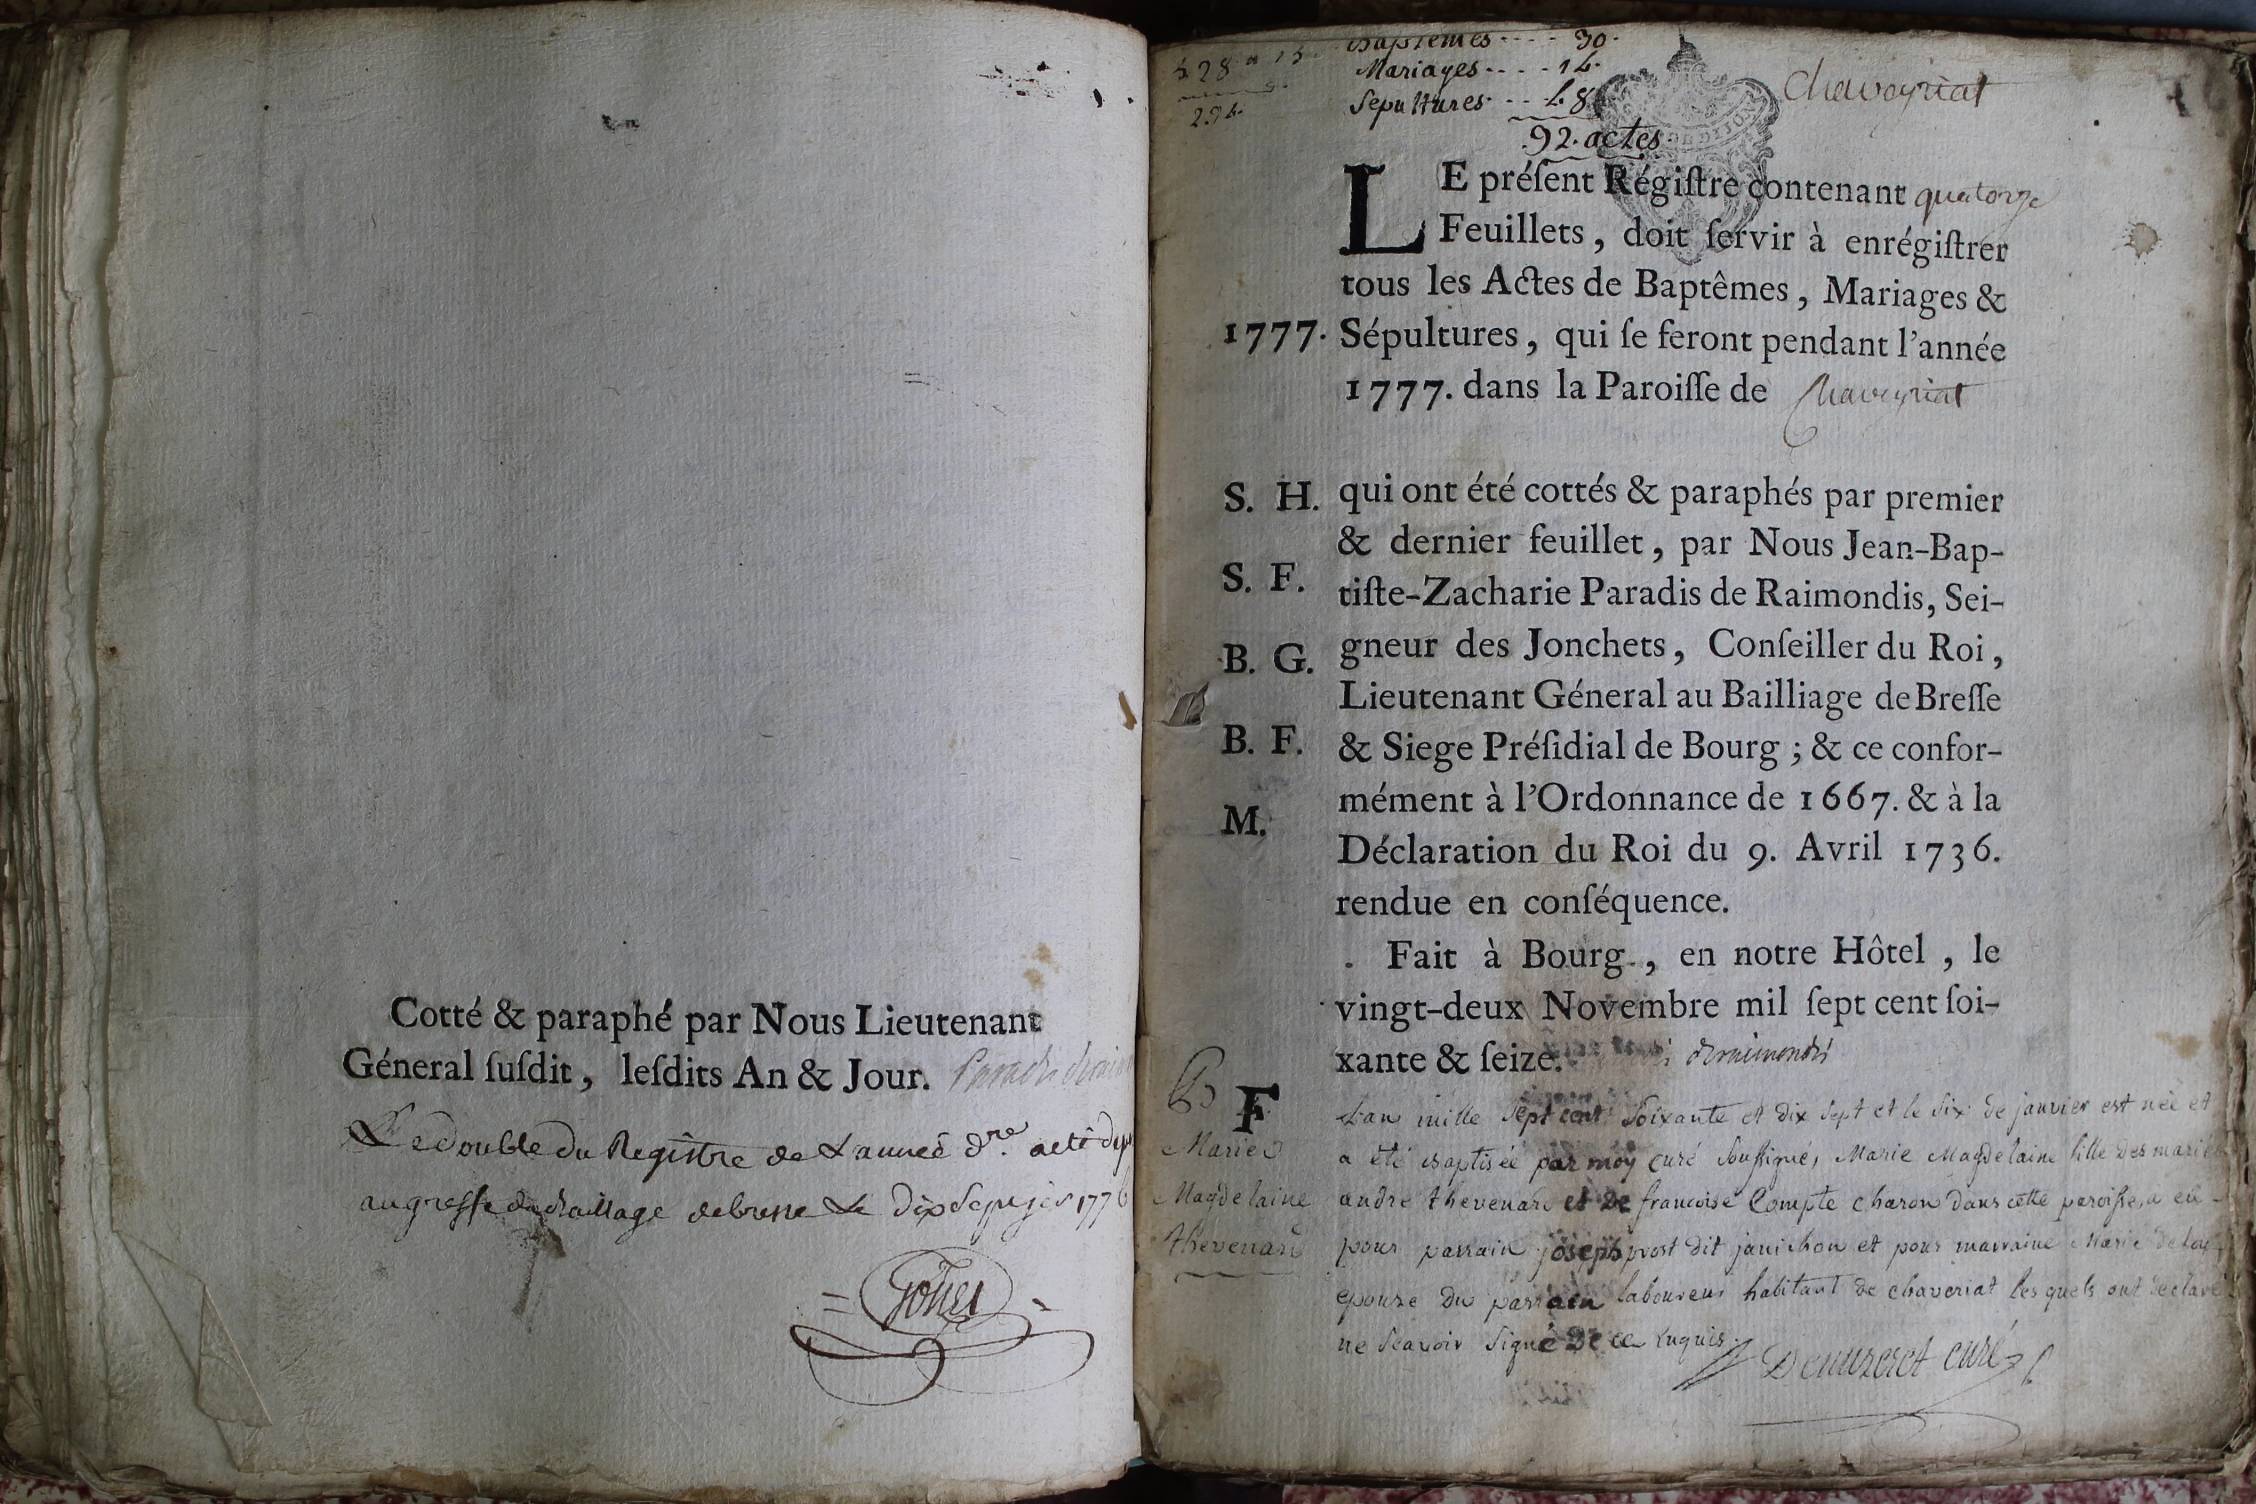 Cotté & paraphé par Nous Lieutenant
Géneral ſuſdit, leſdits An & Jour.
Le double du Registre de L'année d.re a eté
au greffe du Bailliage de bresse Le Dix Sept
Baptemes ---- 30.
Mariages ---- 14.
Sepultures --- 48
92. actes
Chaveyriat
LE préſent Régiſtre contenant quatorze
Feuillets, doit ſervir à enrégiſtrer
tous les Actes de Baptêmes, Mariages &
1777. Sépultures, qui ſe feront pendant l'année
1777. dans la Paroiſſe de Chaveyriat
S. H. qui ont été cottés & paraphés par premier
& dernier feuillet, par Nous Jean-Bap-
S. F. tiſte-Zacharie Paradis de Raimondis, Sei-
gneur des Jonchets, Conſeiller du Roi,
B. G. Lieutenant Géneral au Bailliage de Breſſe
B. F. & Siege Préſidial de Bourg ; & ce confor-
mément à l'Ordonnance de 1667. & à la
M. Déclaration du Roi du 9. Avril 1736.
rendue en conſéquence.
Fait à Bourg, en notre Hôtel, le
vingt-deux Novembre mil ſept cent ſoi-
xante & ſeize. deraimondis
B F
Marie
Magdelaine
thevenard
L'an mille sept cent soixante et dix sept et le six de janvier est née et
a été baptisée par moy curé soussigné, Marie Magdelaine fille des mariés
andré thevenard et de francoise Compte charon dans cette paroisse, a eü
pour parrain joseph prost dit janichon et pour marraine Marie
epouze du parrain laboureur habitant de chaveriat les quels ont declaré
ne scavoir signé de ce enquis.
Demuzeret curé